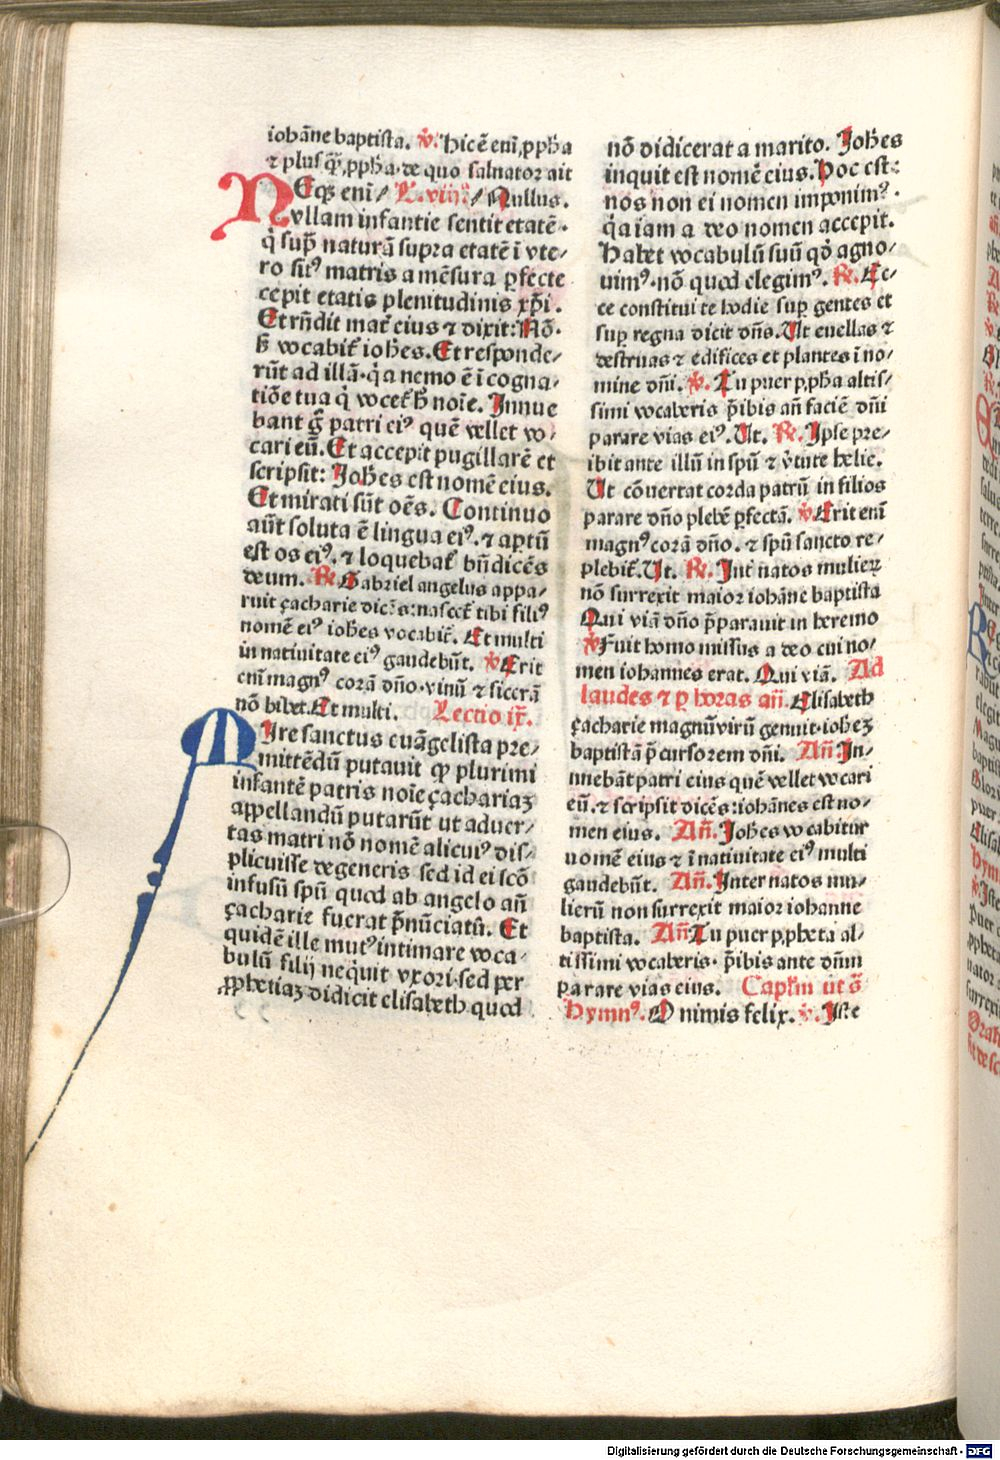 iohãne baptista. ꝟ. Hic ẽ eni͂ ꝓpħa
⁊ plusq̃ ꝓpħa·de quo saluator ait
NEqꝫ eni͂/ L.viijͣ./ Nullus.
Nvllam infantie sentit etatẽ·
q̇ sup̃ naturã supra etatẽ i͂ vte⸗
ro sitꝰ matris a mẽsura ꝑfecte
cepit etatis plenitudinis xp̃i.
Et rñdit mat̃ eius ⁊ dixit: Nõ·
ẞ vocabit̃ iohẽs. Et responde⸗
rũt ad illã·q̇a nemo ẽ i͂ cogna⸗
tiõe tua q̇ vocet̃ ħ noi͂e. Innue
bant g̃ patri eiꝰ quẽ vellet vo⸗
cari eũ. Et accepit pugillarẽ et
scripsit: Johẽs est nomẽ eius.
Et mirati sũt oẽs. Continuo
aũt soluta ẽ lingua eiꝰ.⁊ aꝑtũ
est os eiꝰ.⁊ loquebat̃ bñdicẽs
deum. ℟. Gabriel angelus appa
ruit çacharie dicẽs: nascet̃ tibi filiꝰ
nomẽ eiꝰ iohẽs vocabit̃. Et multi
in natiuitate eiꝰ gaudebũt. ꝟ Erit
eni͂ magnꝰ corã dño·vinũ ⁊ sicerã
nõ bibet. Et multi. Lectio ix̃.
MIre sanctus euãgelista pre⸗
mittẽdũ putauit ꝙ plurimi
infantẽ patris noi͂e çachariaꝫ
appellandũ putarũt ut aduer⸗
tas matri nõ nomẽ alicuiꝰ dis⸗
plicuisse degeneris sed id ei scõ
infusũ spũ quod ab angelo añ
çacharie fuerat p̃nũciatũ. Et
quidẽ ille mutꝰ intimare voca⸗
bulũ filij neq̇uit vxori·sed per
ꝓphetiaꝫ didicit elisabeth quod
nõ didicerat a marito. Johẽs
inquit est nomẽ eius. Hoc est:
nos non ei nomen imponimꝰ·
q̇a iam a deo nomen accepit.
Habet vocabulũ suũ qđ agno⸗
uimꝰ·nõ quod elegimꝰ. ℟. Ec⸗
ce constitui te hodie suꝑ gentes et
suꝑ regna dicit dñs. Ut euellas ⁊
destruas ⁊ edifices et plantes i͂ no⸗
mine dñi. ꝟ. Tu puer ꝓpħa altis⸗
simi vocaberis p̃ibis añ faciẽ dñi
parare vias eiꝰ. Ut. ℟. Ipse pre⸗
ibit ante illũ in spũ ⁊ v̓tute helie.
Ut cõuertat corda patrũ in filios
parare dño plebẽ ꝑfectã. ꝟ Erit eni͂
magnꝰ corã dño.⁊ spũ sancto re⸗
plebit̃. Ut. ℟. Int̃ natos mulieꝝ
nõ surrexit maior iohãne baptista
Qui viã dño p̃parauit in heremo
ꝟ Fuit homo missus a deo cui no⸗
men iohannes erat. Qui viã. Ad
laudes ⁊ ꝑ horas añ. Elisabeth
çacharie magnũ virũ genuit·iohẽꝫ
baptistã p̃cursorem dñi. Añ. In⸗
nuebãt patri eius quẽ vellet vocari
eũ.⁊ scripsit dicẽs: iohãnes est no⸗
men eius. Añ. Johẽs vocabitur
nomẽ eius ⁊ i͂ natiuitate eiꝰ multi
gaudebũt. Añ. Inter natos mu⸗
lierũ non surrexit maior iohanne
baptista. Añ Tu puer ꝓpheta al⸗
tissimi vocaberis· p̃ibis ante dñm
parare vias eius. Capl̃m ut s̃
Hymnꝰ. O nimis felix. ꝟ. Iste
Digitalisierung gefördert durch die Deutsche Forschungsgemeinschaft - DFG